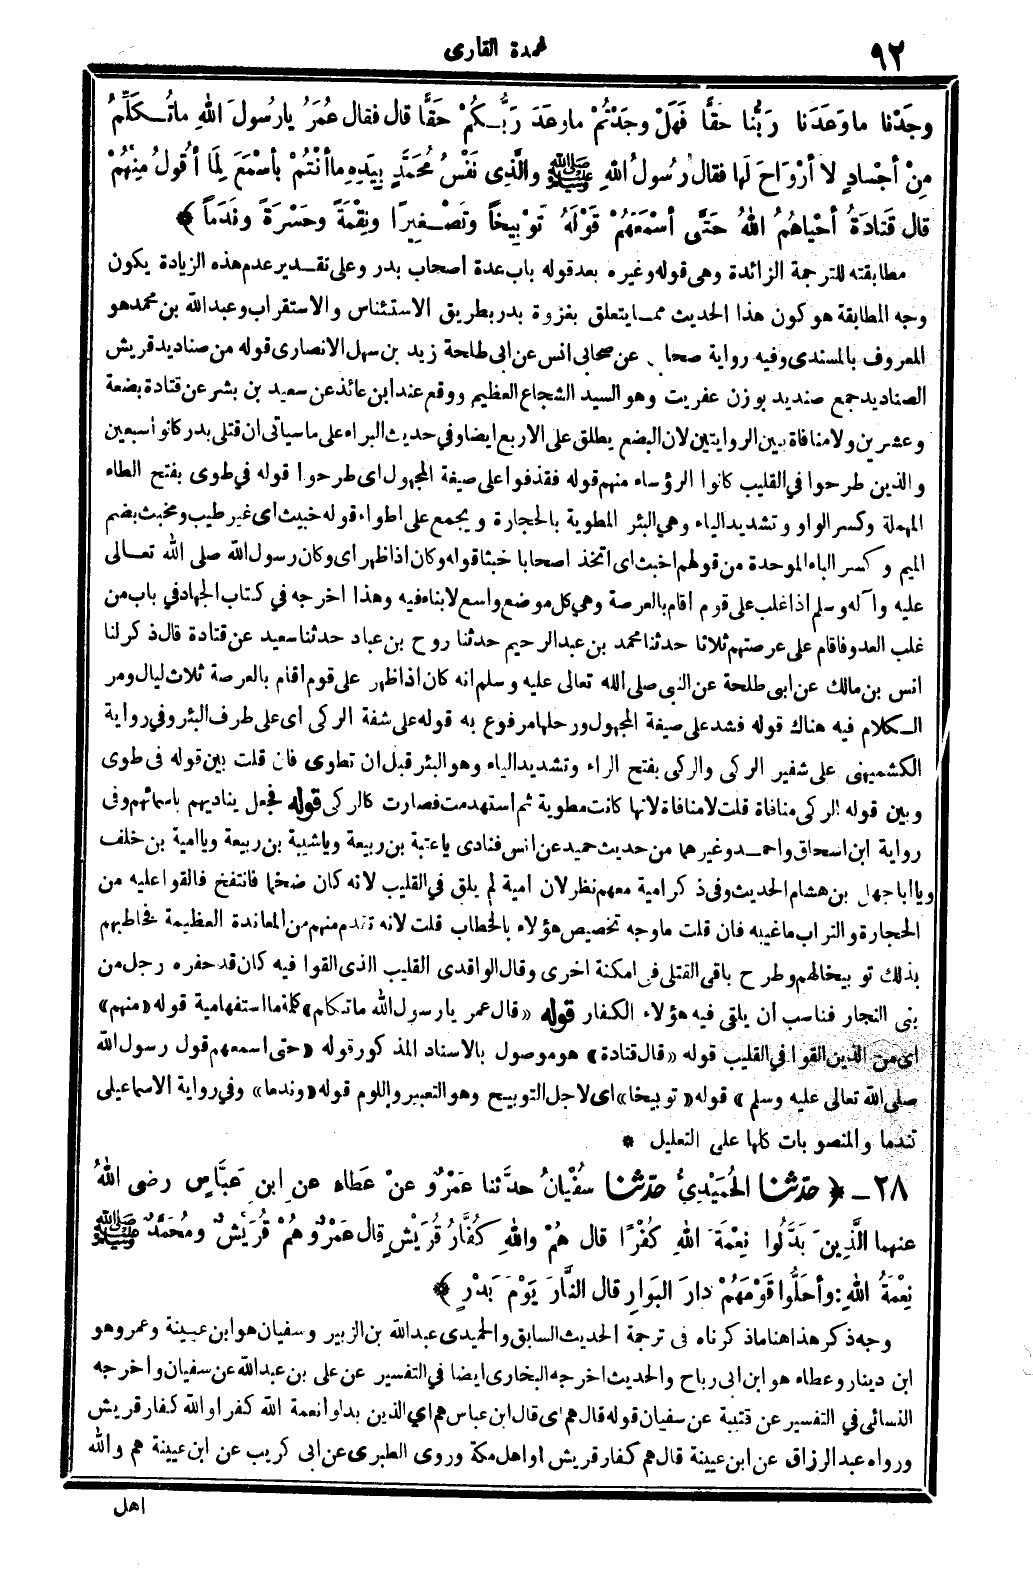 ٩٢
عمدة القارى
وجَدْنا ما وَعَدَنا رَبُّنا حقًّا فَهَلْ وجَدْتُمْ ما وعَدَ رَبُّـكُمْ حَقًّا قال فقال عُمَرُ يارسُولَ اللهِ ماتُـكَلِّمُ
مِنْ أجْسادٍ لا أرْوَاحَ لَها فقال رسُولُ اللهِ ﷺ والَّذِى نَفْسُ مُحَمَّدٍ بِيَدِهِ ماأنْتُمْ بأسْمَعَ لِمَا أقُولُ مِنْهُمْ
قال قَتادَةُ أحْياهُمُ اللهُ حَتَّى أسْمَعَهُمْ قَوْلَهُ تَوْبِيخاً وتَصْـغِيرًا ونِقْمَةً وحَسْرَةً ونَدَماً ﴾
مطابقته للترجمة الزائدة وهى قوله وغيره بعد قوله باب عدة اصحاب بدر وعلى تقـدير عدم هذه الزيادة يكون
وجه المطابقة هو كون هذا الحديث ممـا يتعلق بغزوة بدر بطريق الاستئناس والاستقراب وعبدالله بن محمد هو
المعروف بالمسندى وفيه رواية صحابى عن صحابى انس عن ابى طلحة زيد بن سهل الانصارى قوله من صناديد قريش
الصناديد جمع صنديد بوزن عفريت وهو السيد الشجاع العظيم ووقع عند ابن عائذ عن سعيد بن بشر عن قتادة بضعة
وعشرين ولا منافاة بين الروايتين لان البضع يطلق على الاربع ايضا وفى حديث البراء على ما سياتى ان قتلى بدر كانوا سبعين
والذين طرحوا فى القليب كانوا الرؤساء منهم قوله فقذفوا على صيغة المجهول اى طرحوا قوله فى طوى بفتح الطاء
المهملة وكسر الواو وتشديد الياء وهى البئر المطوية بالحجارة ويجمع على اطواء قوله خبيث اى غير طيب ومخبث بضم
الميم وكسر الباء الموحدة من قولهم اخبث اى اتخذ اصحابا خبثا قوله وكان اذا ظهر اى وكان رسول الله صلى الله تعـالى
عليه وآله وسلم اذا غلب على قوم اقام بالعرصة وهى كل موضع واسع لا بناء فيه وهذا اخرجه فى كتاب الجهاد فى باب من
غلب العدو فاقام على عرصتهم ثلاثا حدثنا محمد بن عبد الرحيم حدثنا روح بن عباد حدثنا سعيد عن قتادة قال ذكر لنا
انس بن مالك عن ابى طلحة عن النبى صلى الله تعالى عليه وسلم انه كان اذا ظهر على قوم اقام بالعرصة ثلاث ليال ومر
الـكلام فيه هناك قوله فشد على صيغة المجهول ورحلها مرفوع به قوله على شفة الركى اى على طرف البئر وفى رواية
الكشميهنى على شفير الركى والركى بفتح الراء وتشديد الياء وهو البئر قبل ان تطوى فان قلت بين قوله فى طوى
وبين قوله الركى منافاة قلت لا منافاة لانها كانت مطوية ثم استهدمت فصارت كالركى قوله فجعل يناديهم باسمائهم وفى
رواية ابن اسحاق واحمـد وغيرهما من حديث حميد عن انس فنادى ياعتبة بن ربيعة وياشيبة بن ربيعة وياامية بن خلف
وياأبا جهل بن هشام الحديث وفى ذكر امية معهم نظر لان امية لم يلق فى القليب لانه كان ضخما فانتفخ فالقوا عليه من
الحجارة والتراب ما غيبه فان قلت ما وجه تخصيص هؤلاء بالخطاب قلت لانه تقدم منهم من المعاندة العظيمة فخاطبهم
بذلك توبيخا لهم وطرح باقى القتلى فى امكنة اخرى وقال الواقدى القليب الذى القوا فيه كان قد حفره رجل من
بنى النجار فناسب أن يلقى فيه هؤلاء الكفار قوله «قال عمر يارسول الله ماتكلم» كلمة ما استفهامية قوله «منهم»
اى من الذين القوا فى القليب قوله «قال قتادة» هو موصول بالاسناد المذكور قوله «حتى اسمعهم قول رسول الله
صلى الله تعالى عليه وسلم» قوله «توبيخا» اى لاجل التوبيخ وهو التعيير واللوم قوله «وندما» وفى رواية الاسماعيلى
تندما والمنصوبات كلها على التعليل *
٢٨ ـ ﴿ حدّثنا الحُمَيْدِىُّ حدّثنا سفْيانُ حدَّثنا عمْرٌو عنْ عَطاءٍ عنِ ابنِ عَبَّاسٍ رضى اللهُ
عنهما الَّذِينَ بَدَّلُوا نِعْمَةَ اللهِ كُفْرًا قال هُمْ واللهِ كُفَّارُ قُرَيْشٍ قال عَمْرٌو هُمْ قُرَيْشٌ ومُحَمَّدٌ ﷺ
نِعْمَةُ اللهِ: وأحَلُّوا قَوْمَهُمْ دارَ البَوَارِ قال النَّارَ يَوْمَ بَدْرٍ ﴾
وجه ذكر هذا هنا ما ذكرناه فى ترجمة الحديث السابق والحميدى عبدالله بن الزبير وسفيان هو ابن عيينة وعمرو هو
ابن دينار وعطاء هو ابن ابى رباح والحديث اخرجه البخارى ايضا فى التفسير عن على بن عبدالله عن سفيان واخرجه
النسائى فى التفسير عن قتيبة عن سفيان قوله قال هم اى قال ابن عباس هم اى الذين بدلوا نعمة الله كفرا والله كفار قريش
ورواه عبد الرزاق عن ابن عيينة قال هم كفار قريش او اهل مكة وروى الطبرى عن ابى كريب عن ابن عيينة هم والله
اهل